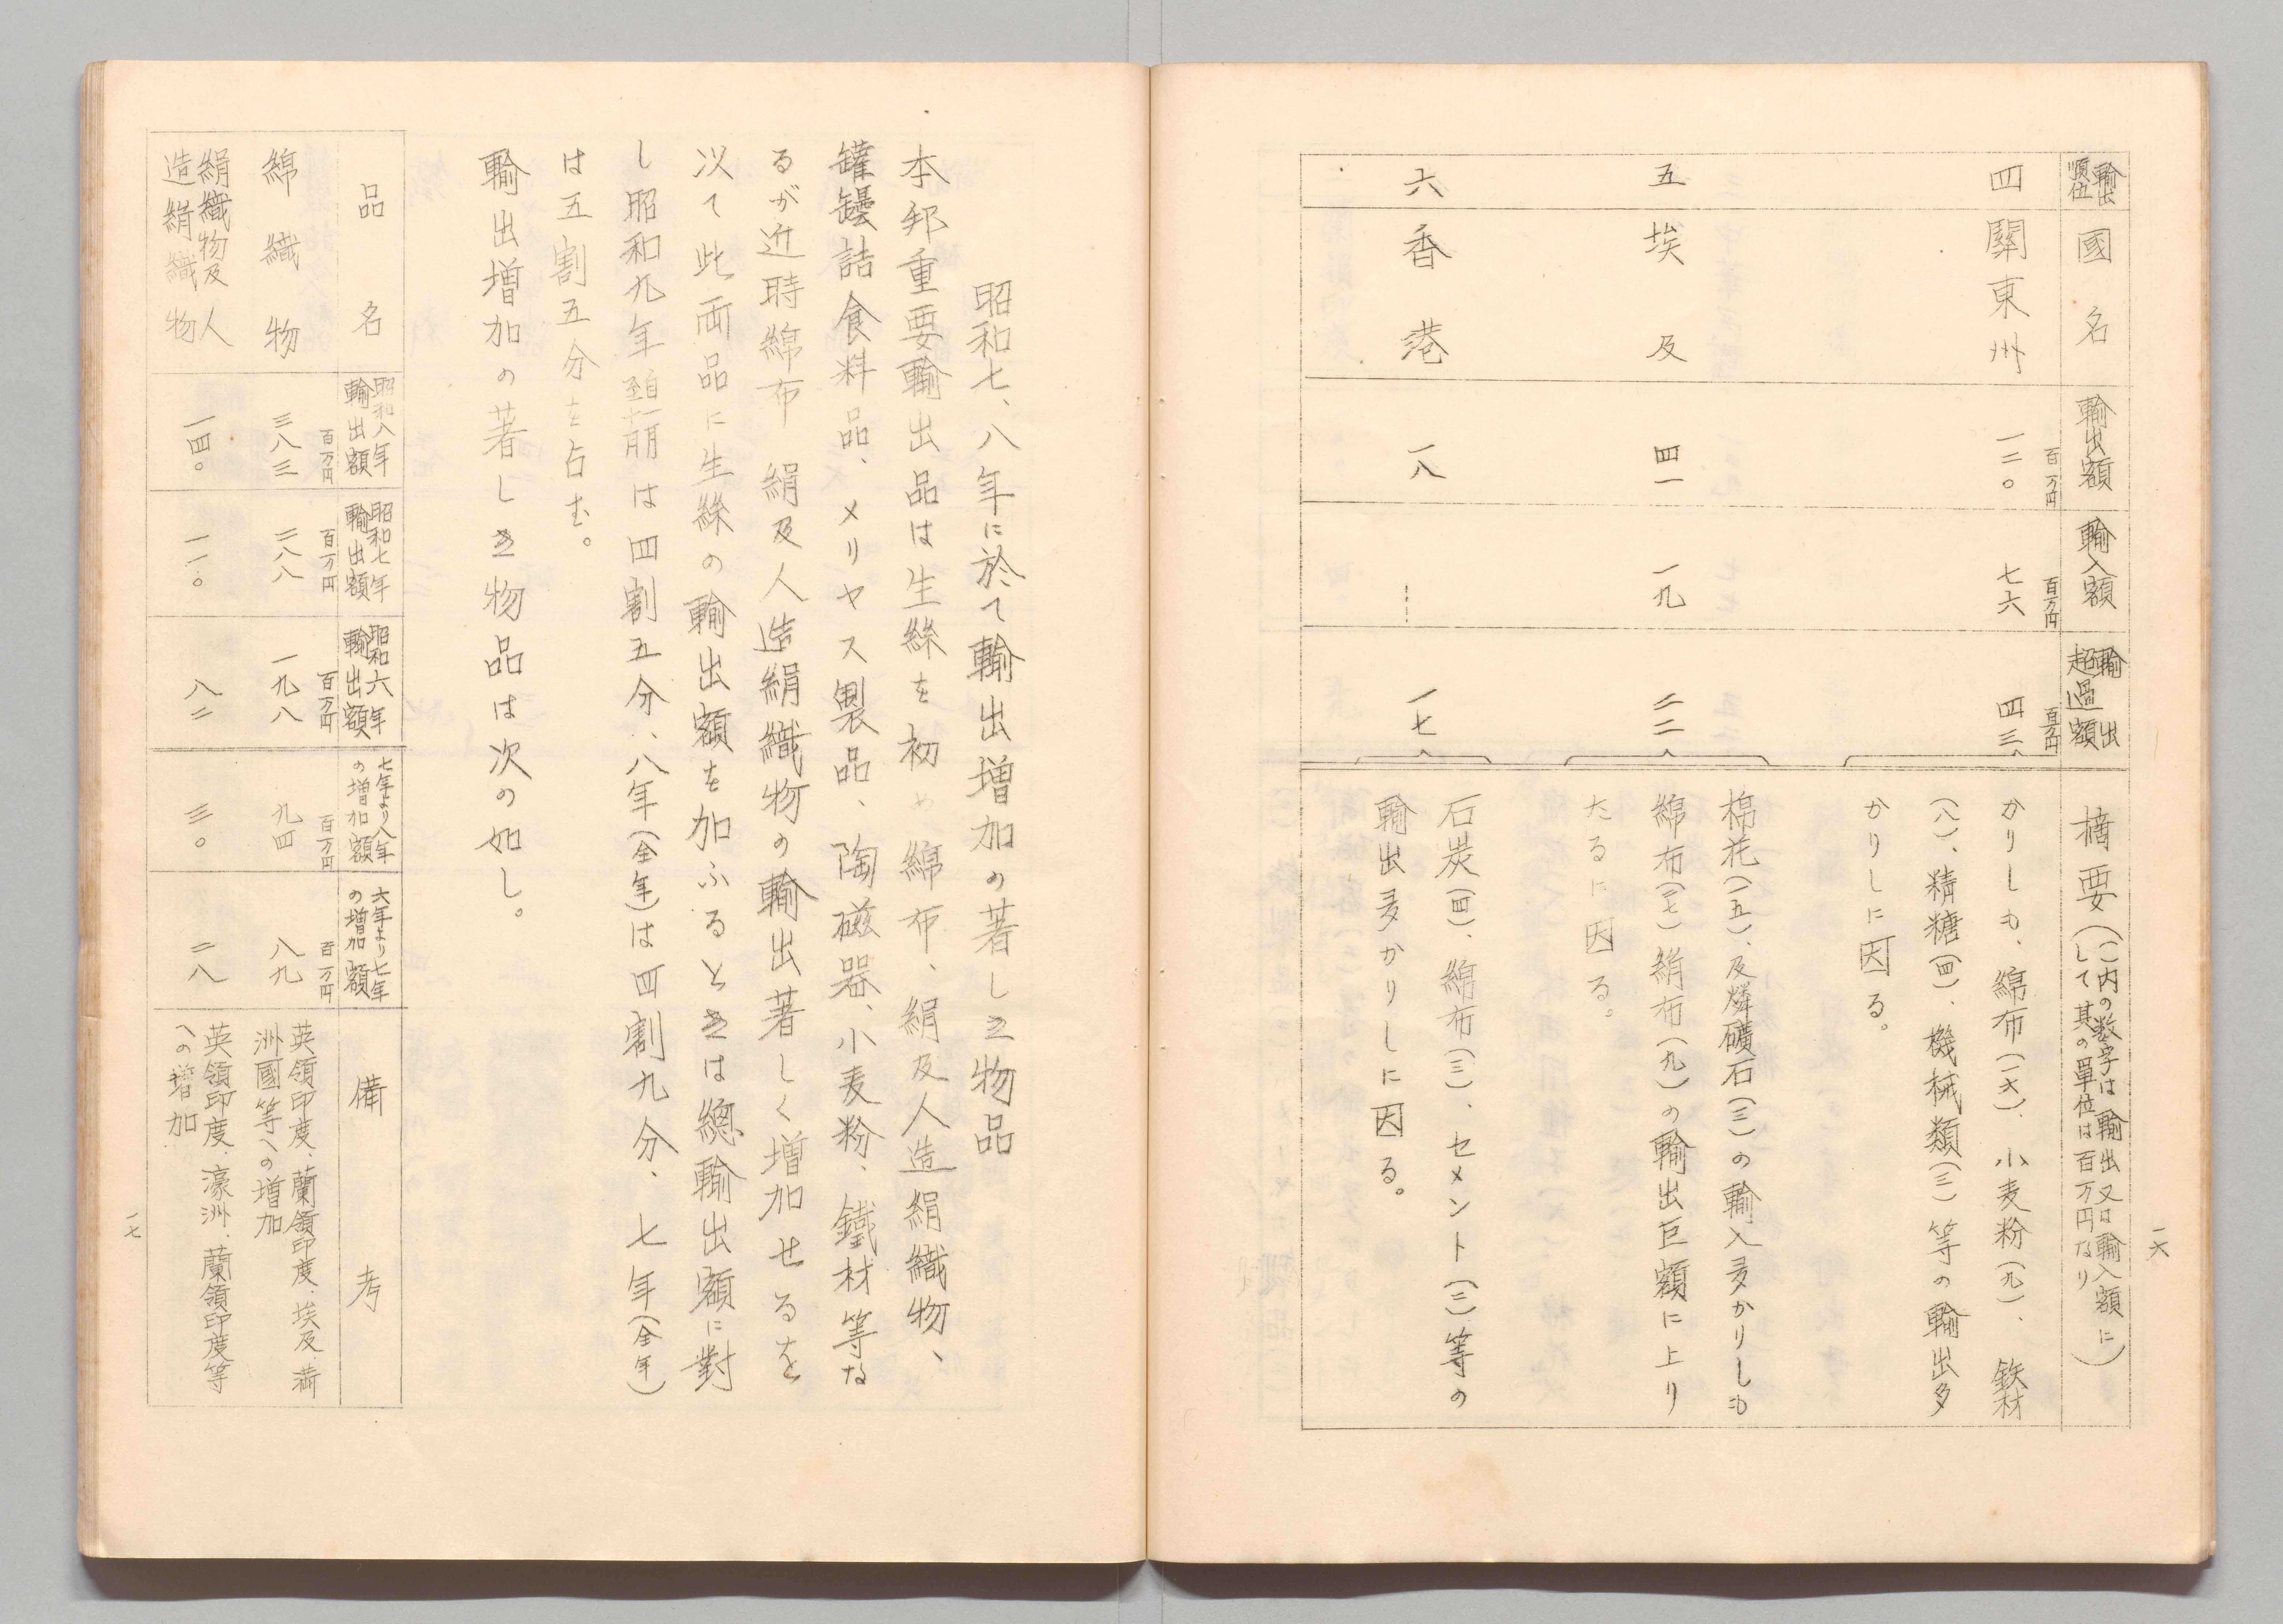 一六
輸出順位
國名
輸出額
輸入額
輸出超過額
摘要(()内の数字は輸出又は輸入額に
して其の單位は百万円なり)
百万円
百万円
百万円
四
關東州
一二〇
七六
四三
かりしも、綿布(一六)、小麦粉(九)、鉄材
(八)、精糖(四)、機械類(三)等の輸出多
かりしに因る。
五
埃及
四一
一九
二二
棉花(一五)、及燐礦石(三)の輸入多かりしも
綿布(一七)絹布(九)の輸出巨額に上り
たるに因る。
六
香港
一八
…
一七
石炭(四)、綿布(三)、セメント(三)等の
輸出多かりしに因る。
昭和七、八年に於て輸出増加の著しき物品
本邦重要輸出品は生絲を初め綿布、絹及人造絹織物、
罐罎詰食料品、メリヤス製品、陶磁器、小麦粉、鐵材等な
るが近時綿布 絹及人造絹織物の輸出著しく増加せるを
以て此両品に生絲の輸出額を加ふるときは總輸出額に對
し昭和九年自一月至十一月は四割五分、八年(全年)は四割九分、七年(全年)
は五割五分を占む。
輸出増加の著しき物品は次の如し。
品名
昭和八年
輸出額
昭和七年
輸出額
昭和六年
輸出額
七年より八年
の増加額
六年より七年
の増加額
備考
百万円
百万円
百万円
百万円
百万円
綿織物
三八三
二八八
一九八
九四
八九
英領印度、蘭領印度、埃及、満
洲國等への増加
絹織物及人
造絹織物
一四〇
一一〇
八二
三〇
二八
英領印度、濠洲、蘭領印度等
への増加
一七